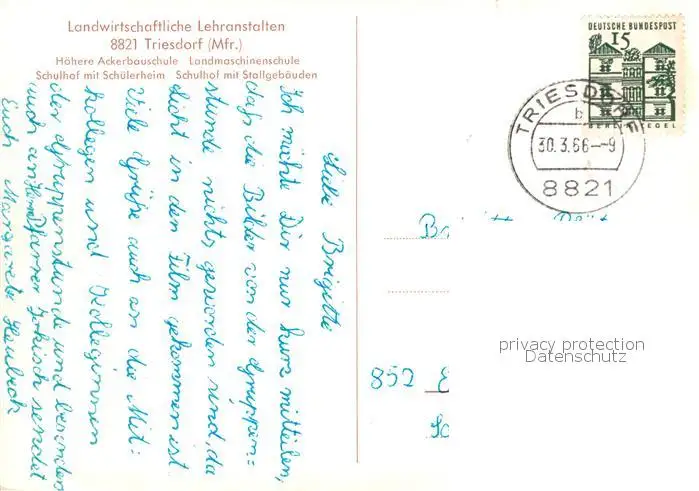 Landwirtschaftliche Lehranstalten
8821 Triesdorf (Mfr.)
Höhere Ackerbauschule Landmaschinenschule
Schulhof mit Schülerheim Schulhof mit Stallgebäuden
Liebe Brigitte
Ich möchte Dir nur kurz mitteilen,
daß die Bilder von der Gruppen=
stunde nichts geworden sind, da
Licht in den Film gekommen ist
Viele Grüße auch an die Mit=
Kollegen und Kolleginnen
der Gruppenstunde und besonders
auch an Herrn Pfarrer sendet
Euch Margarete
DEUTSCHE BUNDESPOST
15
BERLIN TEGEL
TRIESDORF
b
30.3.66--9
8821
852
privacy protection
Datenschutz